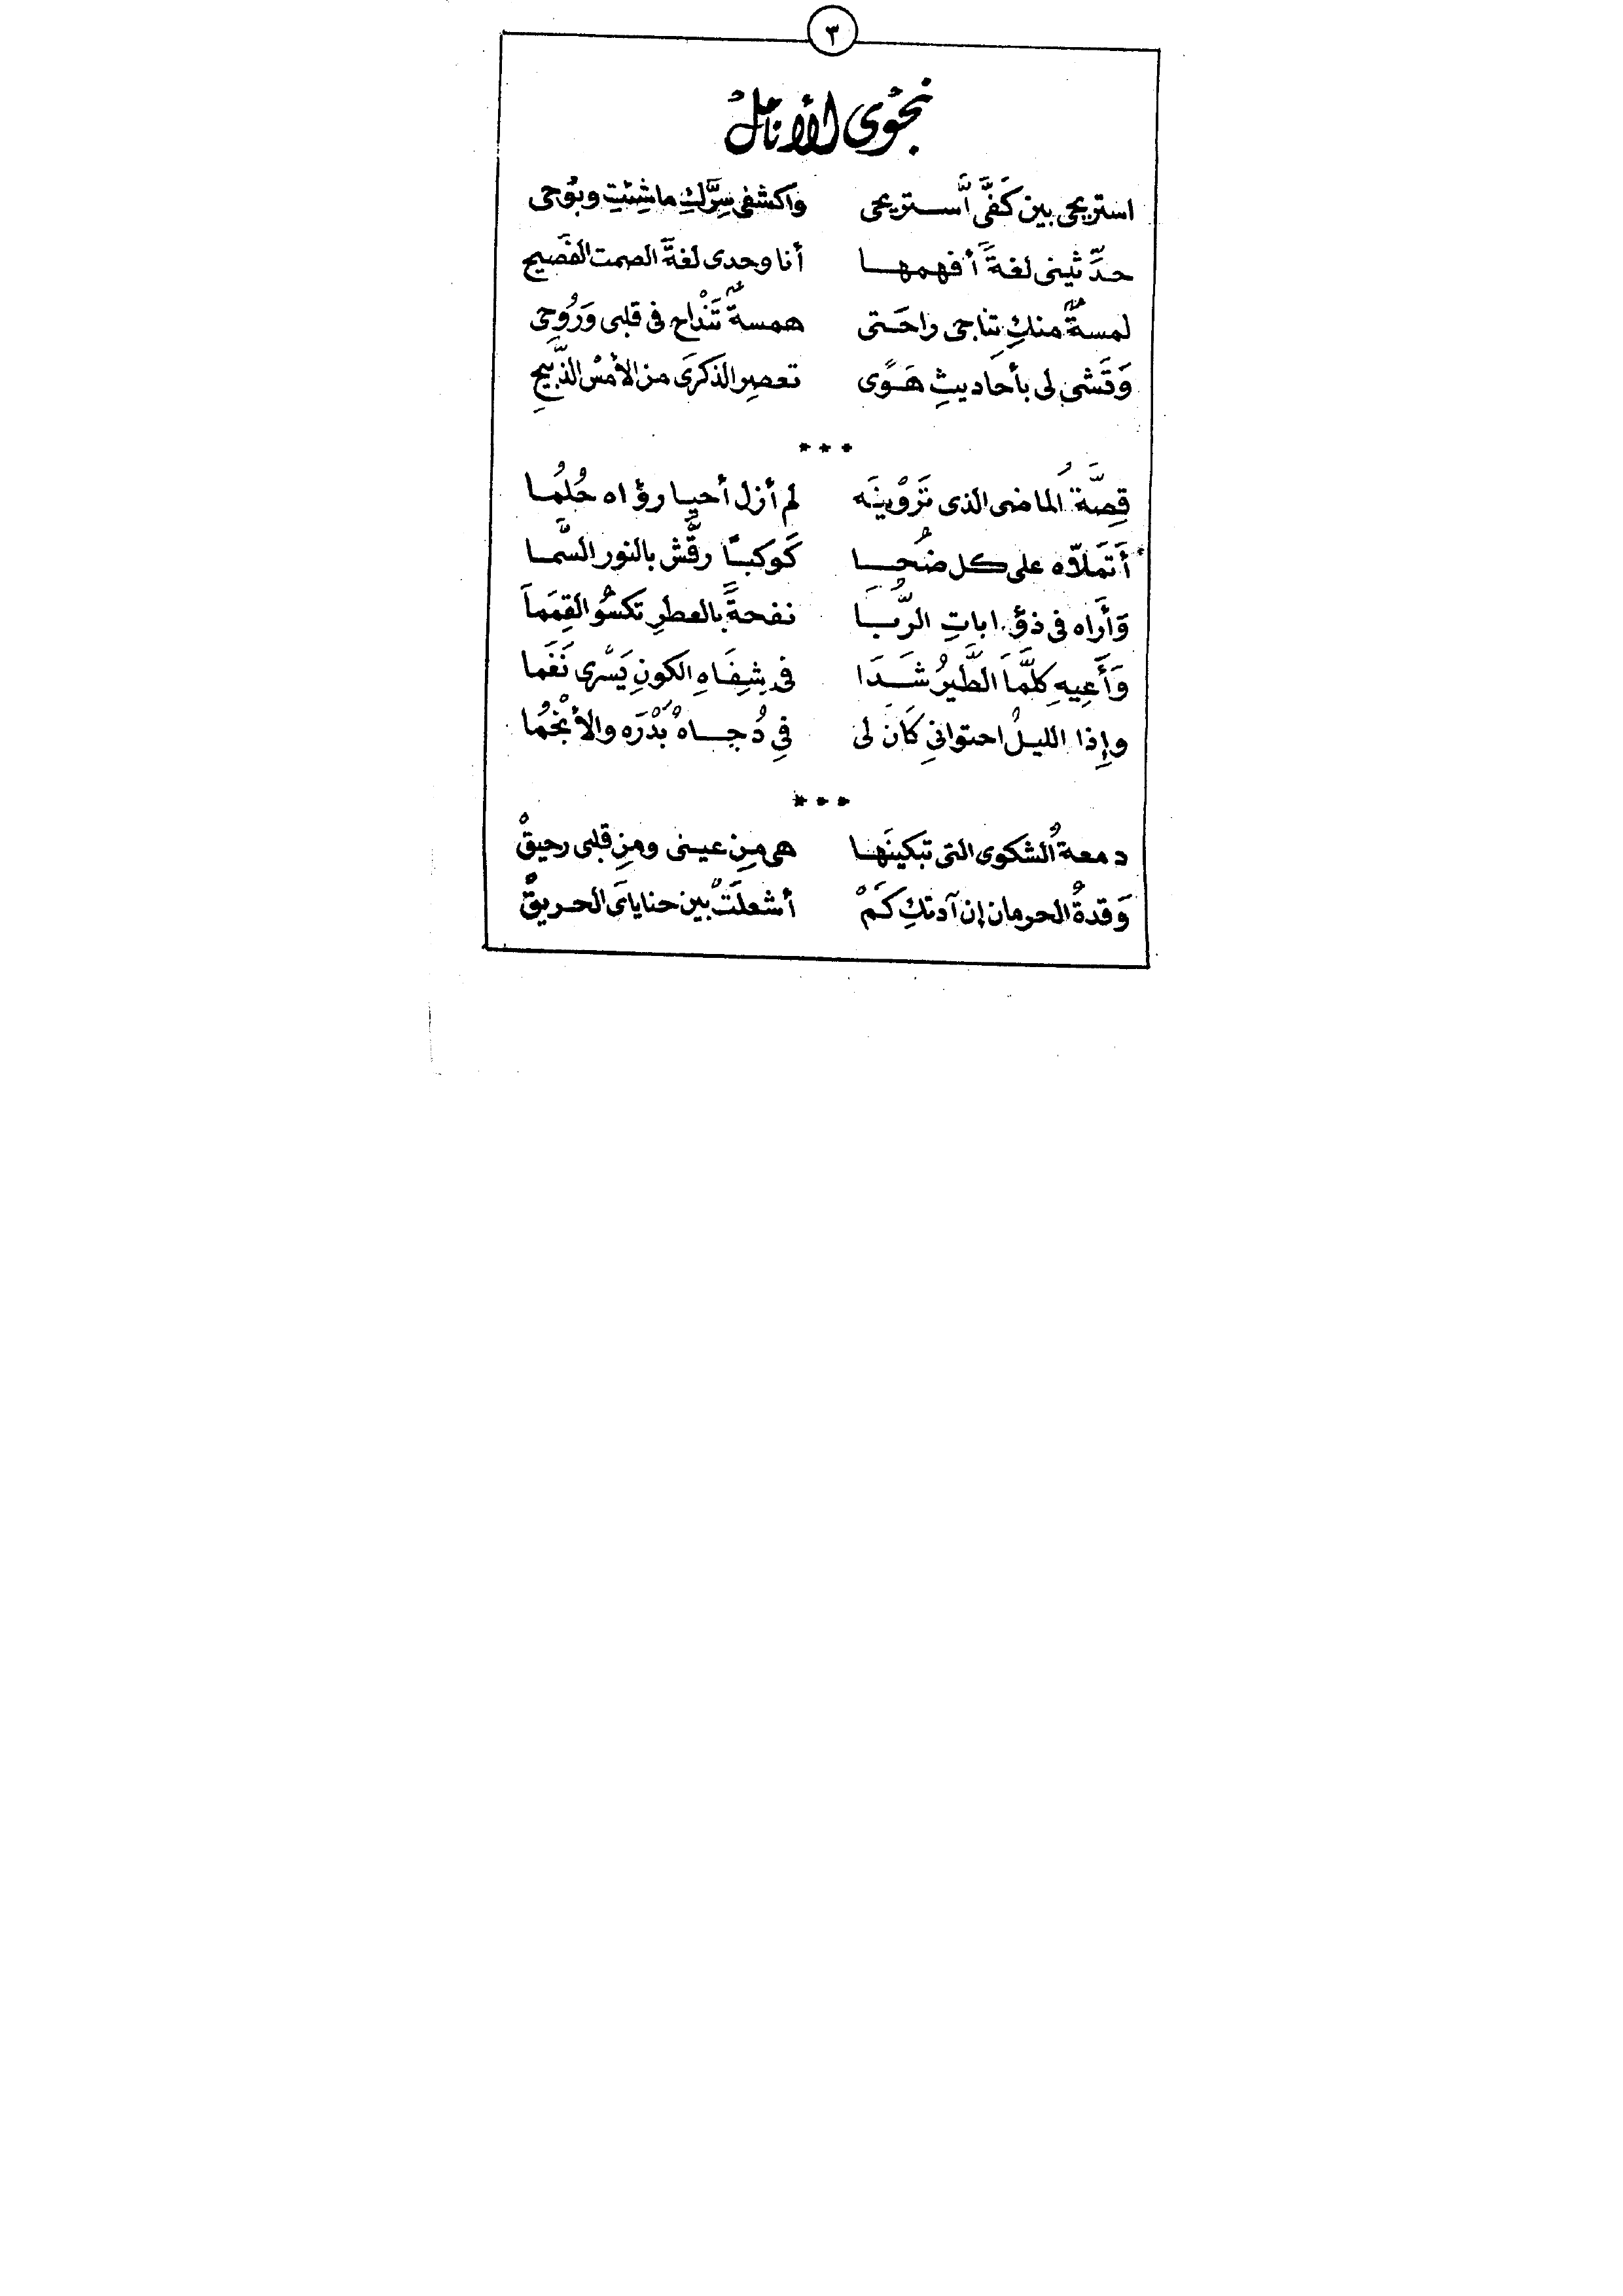 ٣
نجوى الأنامل
استريحى بين كَفَّىَّ استريحى واكشفى سِرَّكِ ما شِئتِ وبُوحى
حدِّثينى لغةً أفهمها أنا وحدى لغةَ الصمت الفَصيحِ
لمسةٌ منكِ تناجى راحَتى همسةٌ تَنْداح فى قلبى وَرُوحِى
وَتَشى لى بأحاديثِ هَوًى تعصِر الذكرَى من الأمْسِ الذَّبيحِ
***
قِصَّةُ الماضى الذى تَرْوِينَه لم أزل أحيا رؤاه حُلُمَا
أَتَملاَّه على كل ضُحا كَوكبًا رقَّش بالنور السَّما
وَأَراه فى ذؤابات الرُّبَا نفحةً بالعطرِ تكسُو القِمَمَا
وَأَعِيهِ كلَّمَا الطَّيرُ شَدَا فى شِفَاهِ الكونِ يَسْرِى نَغَما
وإِذا الليلُ احتوانى كَانَ لى فِى دُجاهُ بَدْرَه والأنْجُمَا
***
دمعةُ الشكوى التى تبكينَها هى مِن عينى ومن قلبى رحيقْ
وَقدةُ الحرمان إن آدتكِ كَمْ أشعلَتْ بين حناياىَ الحريقْ